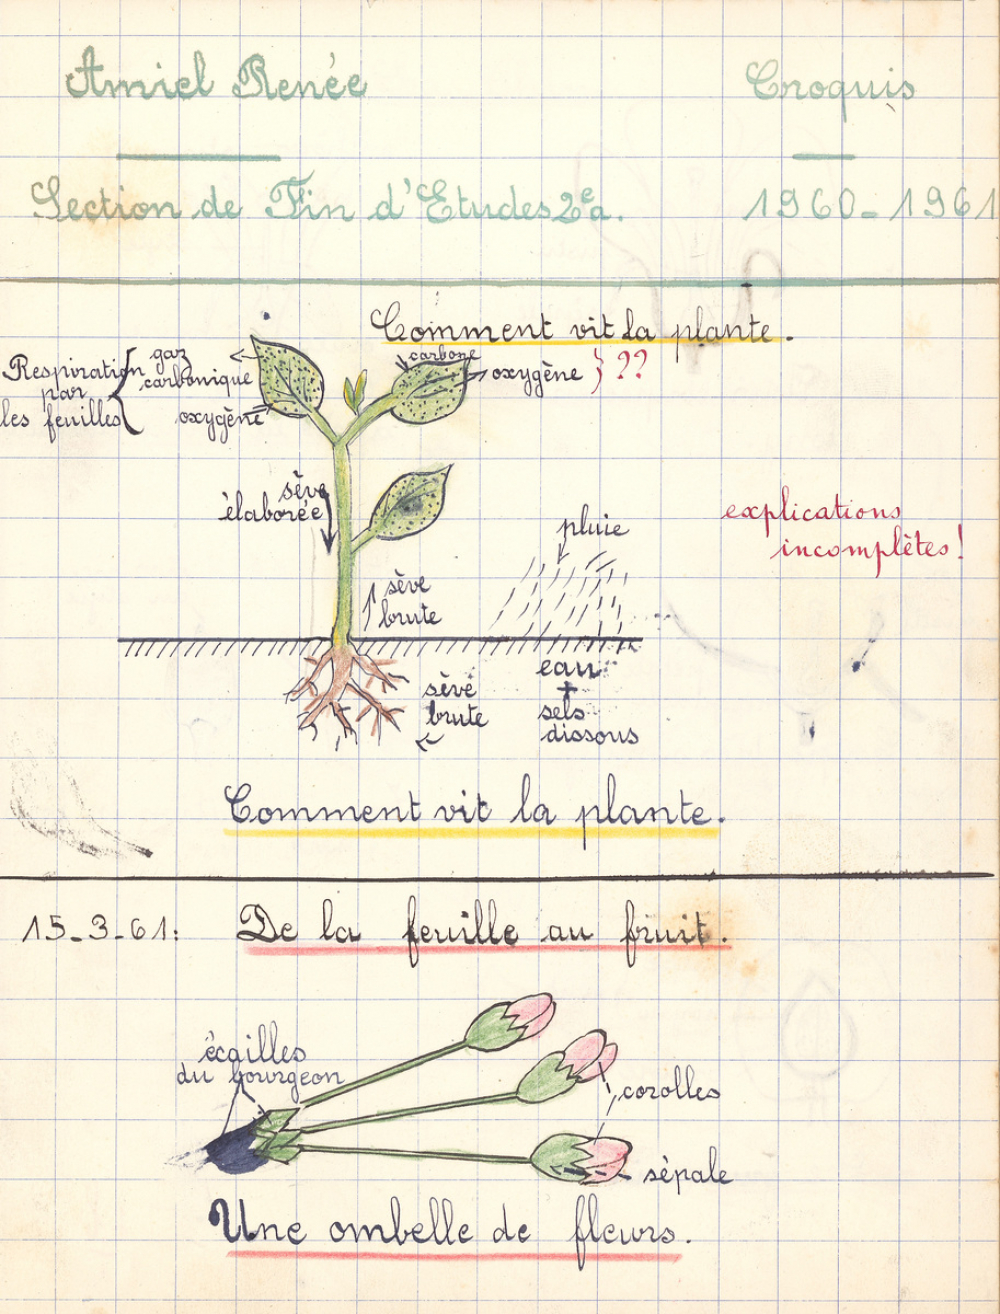 Amiel Renée
Croquis
Section de Fin d'Etudes 2e a.
1960-1961
Comment vit la plante.
Respiration
par
les feuilles
gaz
carbonique
oxygène
carbone
oxygène } ??
sève
élaborée
explications
incomplètes!
pluie
sève
brute
eau
+
sels
dissous
sève
brute
Comment vit la plante.
15-3-61:
De la feuille au fruit.
écailles
du bourgeon
corolles
sépale
Une ombelle de fleurs.